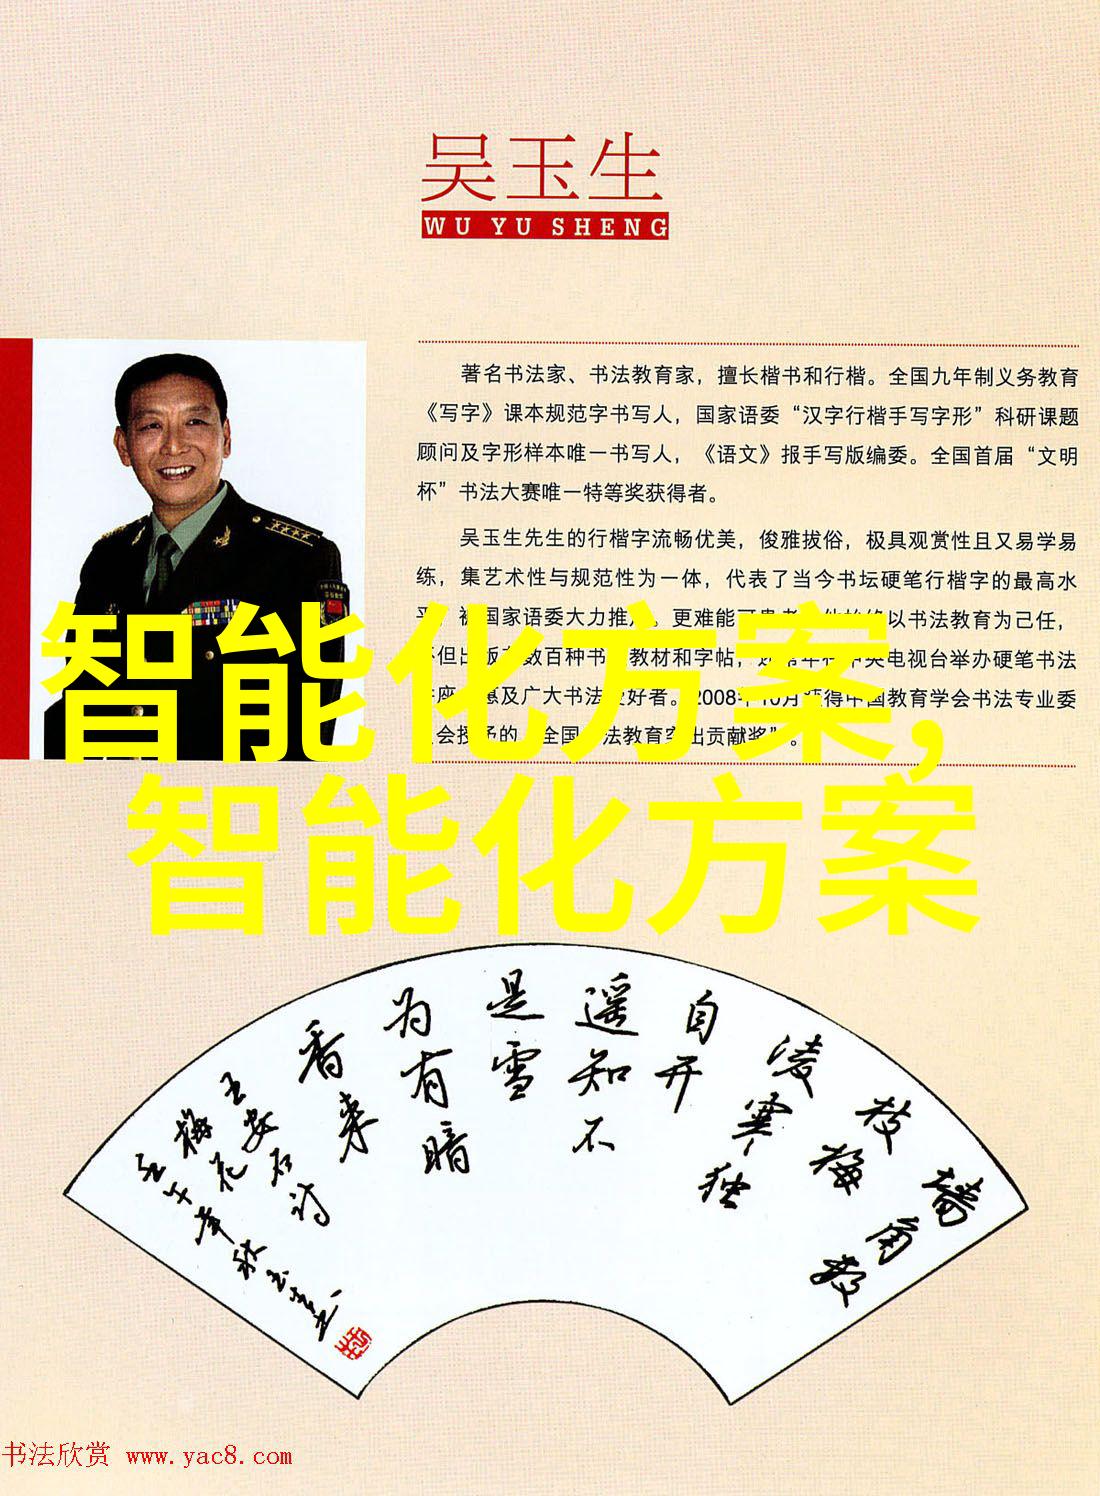 吴玉生
WU YU SHENG
著名书法家、书法教育家，擅长楷书和行楷。全国九年制义务教育
《写字》课本规范字书写人，国家语委“汉字行楷手写字形”科研课题
顾问及字形样本唯一书写人，《语文》报手写版编委。全国首届“文明
杯”书法大赛唯一特等奖获得者。
吴玉生先生的行楷字流畅优美，俊雅拔俗，极具观赏性且又易学易
练，集艺术性与规范性为一体，代表了当今书坛硬笔行楷字的最高水
国家语委大力推 。更难能可贵者 以书法教育为己任，
但出版 数百种书 教材和字帖， 电视台举办硬笔书法
座 惠及广大书法爱好者。2008年10月获得中国教育学会书法专业委
会授予的“全国书法教育突出贡献奖”。
智能化方案,
智能化方案
墙角数
枝梅
凌寒独
自开
遥知不
是雪
为有暗
香来
王安石诗
梅花
壬午年秋
书法欣赏 www.yac8.com